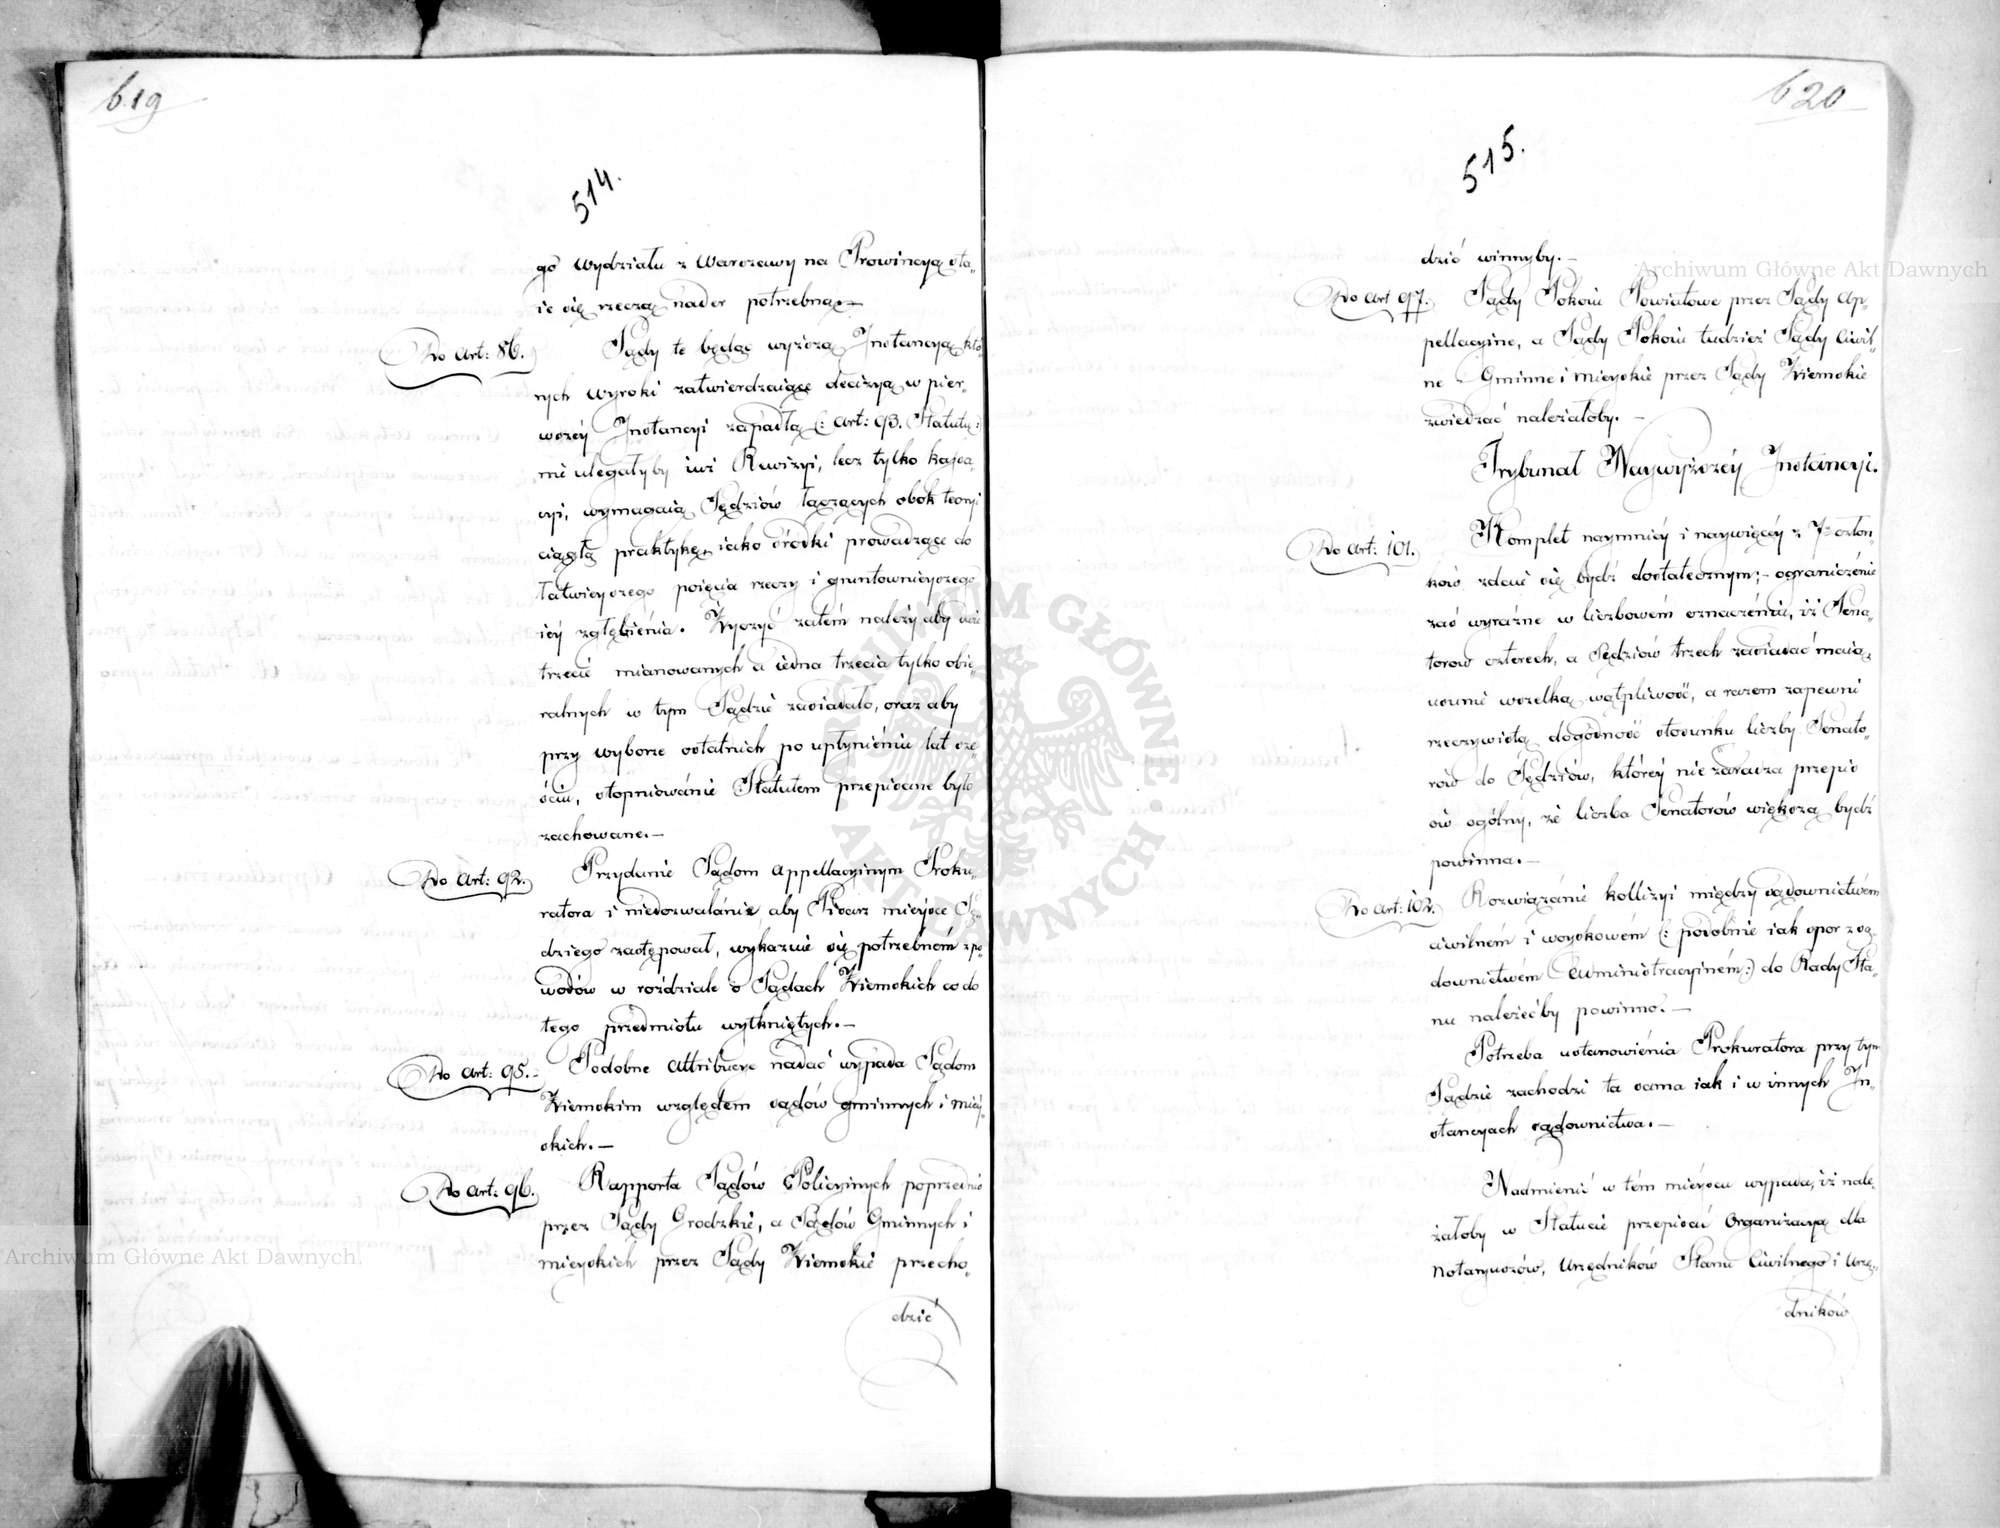 619
514.
go wydziału z Warszawy na Prowincyą sta„
ie się rzeczą nader potrzebną.—
Do Art: 86.
Sądy te będąc wyższą Instancyą któ„
rych wyroki zatwierdzaiące decizyą w pier„
wszéy Instancyi zapadłą (: Art: 93. Statutu :)
nie ulegałyby iuż Rewizyi, lecz tylko kassa„
cyi, wymagaią Sędziów łączących obok teory
ciągłą praktykę, iako środki prowadzące do
łatwieyszego poięcia rzeczy i gruntownieyszego
iéy zgłębienia. Życzyć zatém należy aby dwie
trzecie mianowanych a iedna trzecia tylko obie„
ralnych w tym Sądzie zasiadało, oraz aby
przy wyborze ostatnich po upłynieniu lat sze„
ściu, stopniowanie Statutem przepisane było
zachowane.—
Do Art: 92.
Przydanie Sądom Appellacyinym Proku„
ratora i niedozwalanie aby Pisarz mieysce Sę„
dziego zastępował, wykazuie się potrzebnem z po„
wodów w rozdziale o Sądach Ziemskich co do
tego przedmiotu wytkniętych.—
Do Art: 95.
Podobne Attribucye nadać wypada Sądom
Ziemskim względem sądów gminnych i miey„
skich.—
Do Art: 96.
Rapporta Sądów Policyinych poprzednio
przez Sądy Grodzkie, a Sądów Gminnych i
mieyskich przez Sądy Ziemskie przecho„
dzić
620
515.
dzić winnyby.—
Do Art 97.
Sądy Pokoiu Powiatowe przez Sądy Ap„
pellacyine, a Sądy Pokoiu tudzież Sądy Ciwil„
ne Gminne i Mieyskie przez Sądy Ziemskie
zwiedzać należałoby.—
Trybunał Naywyższéy Instancyi.
Do Art: 101.
Komplet naymniéy i naywięcéy z 7 człon„
ków zdaie się bydź dostatecznym;— ograniczenie
zaś wyraźne w liczbowém oznaczeniu, iż Sena„
torów czterech, a Sędziów trzech zasiadać maią,
usunie wszelką wątpliwość, a razem zapewni
rzeczywistą dogodność stosunku liczby Senato„
rów do Sędziów, któréy nie zaradza przepis
ów ogólny, że liczba Senatorów większą bydź
powinna.—
Do Art: 102.
Rozwiązanie kollizyi między sądownictwem
ciwilném i woyskowém (: podobnie iak spor z są„
downictwém Administracyiném :) do Rady Sta„
nu należéćby powinno.—
Potrzeba ustanowienia Prokuratora przy tym
Sądzie zachodzi ta sama iak i w innych In„
stancyach sądownictwa.—
Nadmienić w tém mieyscu wypada, iż nale„
żałoby w Statucie przepisać Organizacyą dla
Notaryuszów, Urzędników Stanu Ciwilnego i Urzę„
dników
Archiwum Główne Akt Dawnych
Archiwum Główne Akt Dawnych.
ARCHIWUM GŁÓWNE • AKT DAWNYCH •